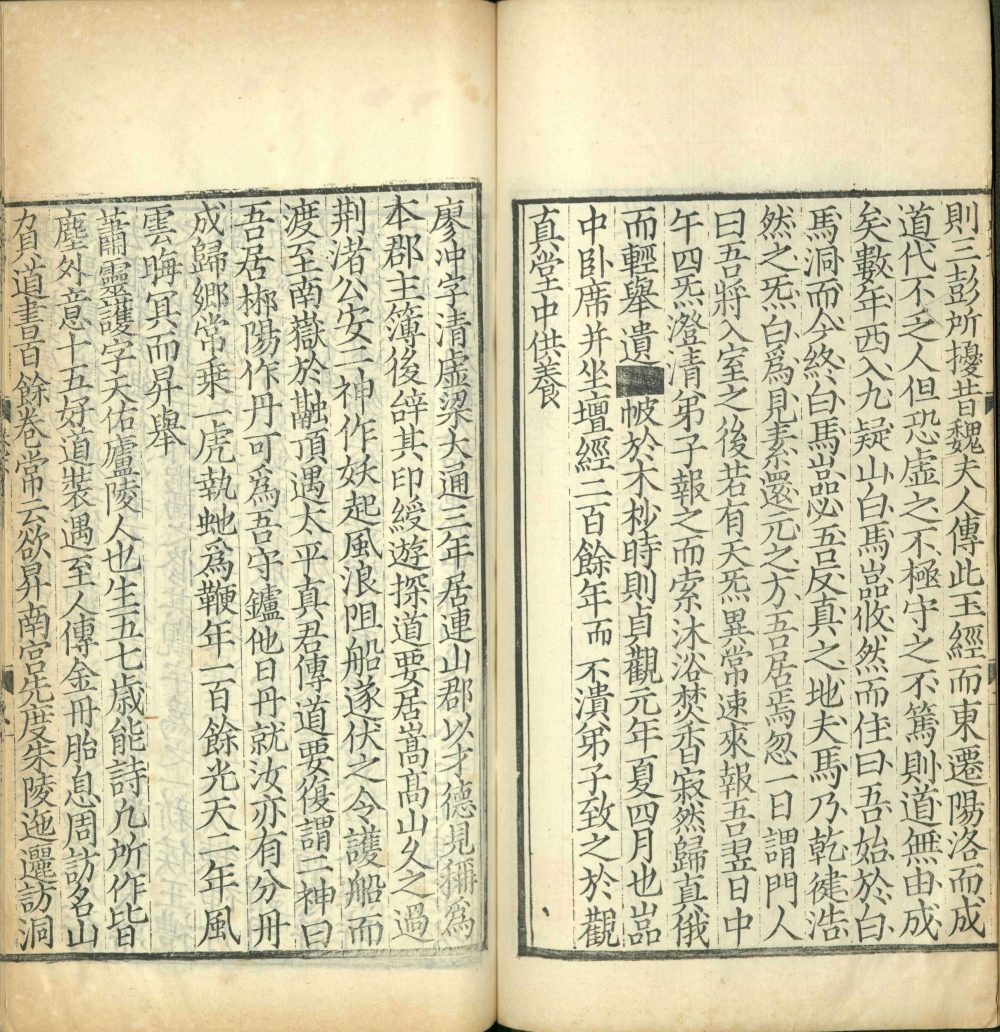 則三彭所擾昔魏夫人傳此玉經而東遷陽洛而成
道代不乏人但恐虛之不極守之不篤則道無由成
矣數年西入九疑山白馬嵓攸然而住曰吾始於白
馬洞而今終白馬嵓惢吾反真之地夫馬乃乾健浩
然之炁白爲見素還元之方吾居焉忽一日謂門人
曰吾將入室之後若有天炁異常速來報吾翌日中
午四炁澄清弟子報之而索沐浴焚香寂然歸真俄
而輕舉遺帔於木杪時則貞觀元年夏四月也嵓
中卧席并坐壇經二百餘年而不潰弟子致之於觀
真堂中供養
廖冲字清虛梁大通三年居連山郡以才德見稱爲
本郡主簿後辝其印綬遊探道要居嵩高山久之過
荆渚公安二神作妖起風浪阻船遂伏之令護船而
渡至南嶽於融頂遇太平真君傳道要復謂二神曰
吾居郴陽作丹可爲吾守鑪他日丹就汝亦有分丹
成歸鄉常乗一虎執虵爲鞭年一百餘光天二年風
雲晦冥而昇舉
蕭靈護字天佑廬陵人也生五七歲能詩凡所作皆
塵外意十五好道裝遇至人傳金丹胎息周訪名山
負道書百餘卷常云欲昇南宫先度朱陵迤邐訪洞